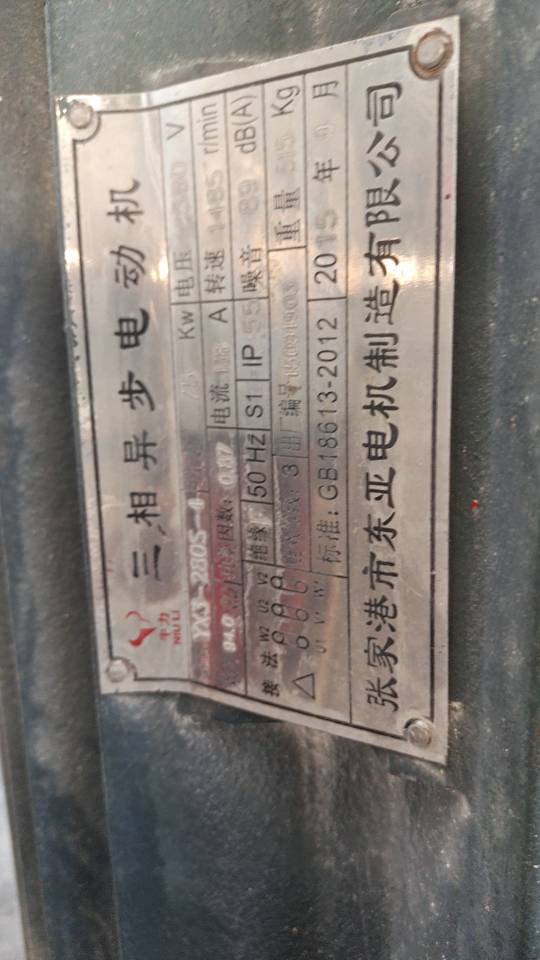 三相异步电动机
牛力
NIU LI
YX3-280S-4 75 Kw 电压 380 V
94.0 因数: 0.87 电流 A 转速 1485 r/min
绝缘 F 50 Hz S1 IP 55 噪音 89 dB(A)
接法 W2 U2 V2 3 出厂编号 重量 Kg
△ U1 V1 W1 标准: GB18613-2012 2015 年 月
张家港市东亚电机制造有限公司